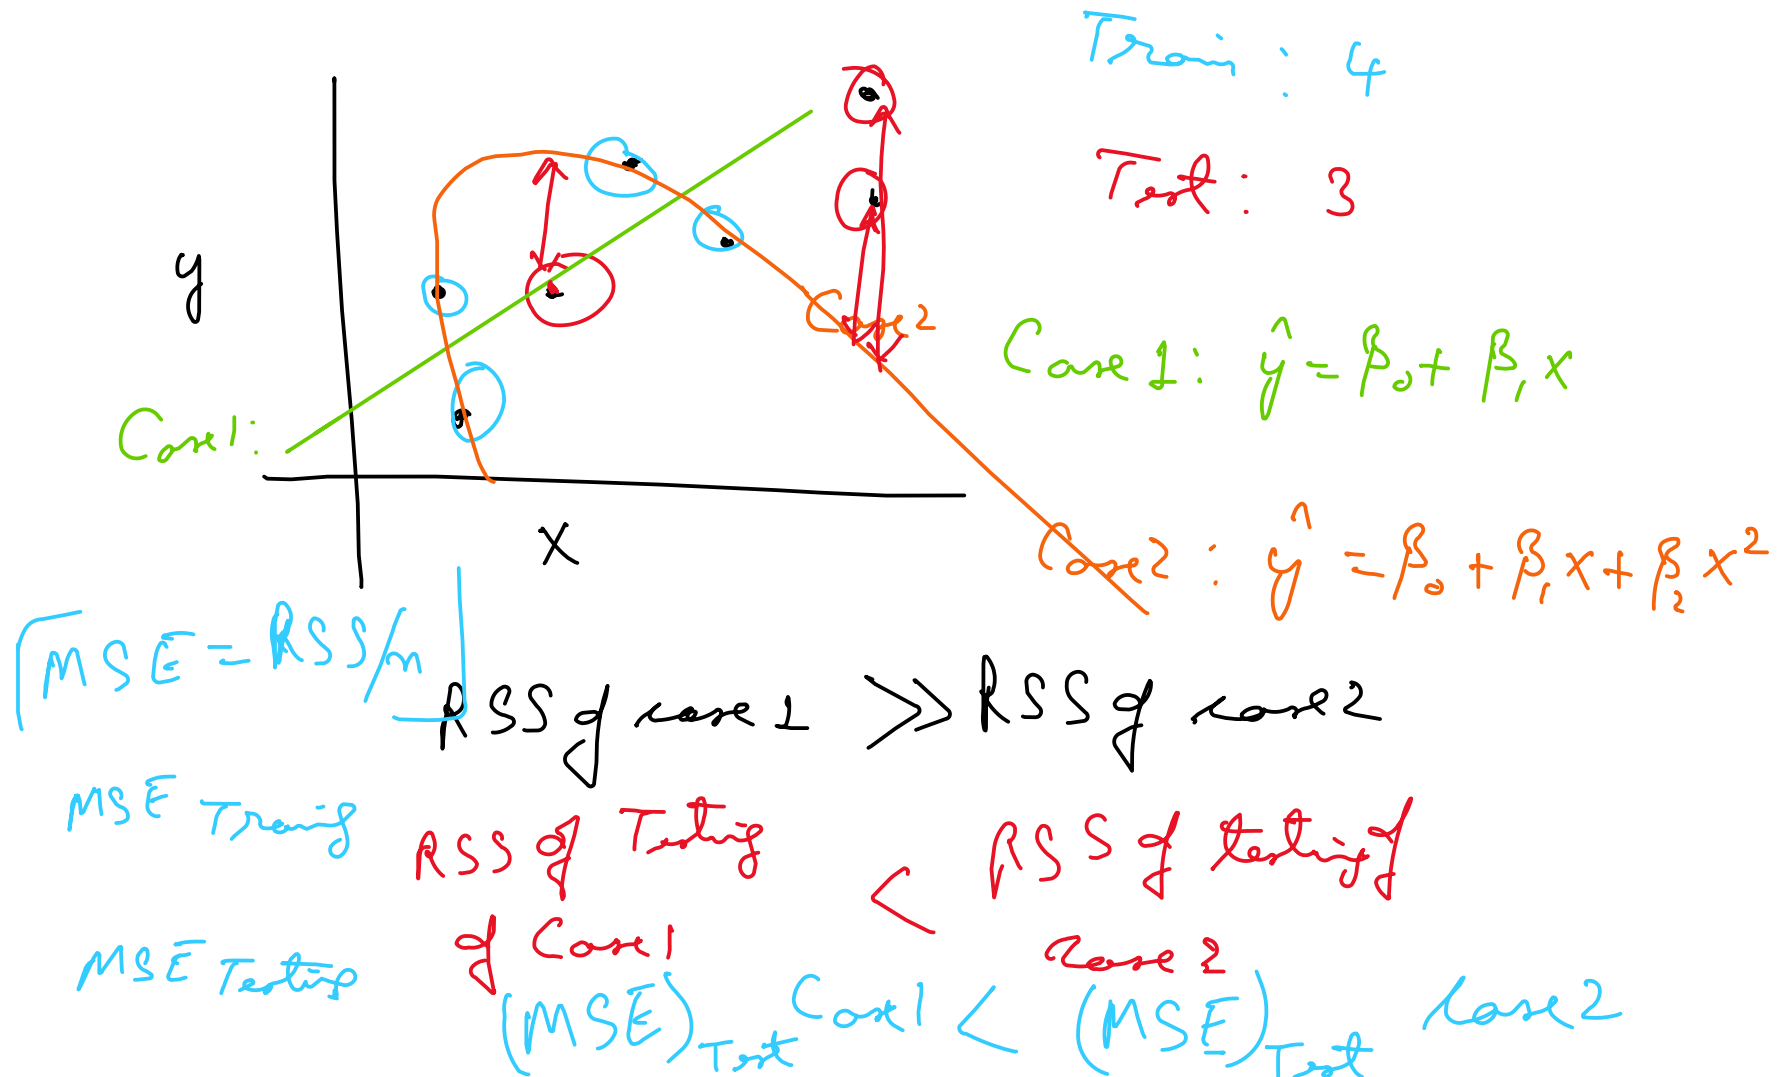 Train : 4
Test : 3
y
Case 2
Case 1 : ŷ = β₀ + β₁ x
Case 1 :
x
Case 2 : ŷ = β₀ + β₁ x + β₂ x²
MSE = RSS/n
RSS of case 1 >> RSS of case 2
MSE Traing
RSS of Testing < RSS of testing of
of Case 1 case 2
MSE Testing
(MSE)Test Case 1 < (MSE)Test Case 2